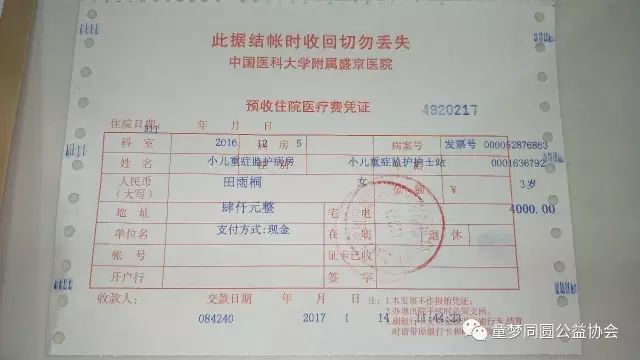 此据结帐时收回切勿丢失
中国医科大学附属盛京医院
预收住院医疗费凭证
4920217
住院日期 年 月 日
科室 2016 12 房 5 病案号 发票号 000052876863
姓名 小儿重症监护病房 小儿重症监护护士站 0001636792
人民币 田雨桐 女 ¥ 3岁
(大写)
地址 肆仟元整 宅电 4000.00
单位名 支付方式:现金 在职 退休
帐号 证卡已收
开户行 签字
收款人: 交款日期 年 月 日 注:1.本发票不作报销凭证;
084240 2017 1 14 11:44:33
童梦同圆公益协会